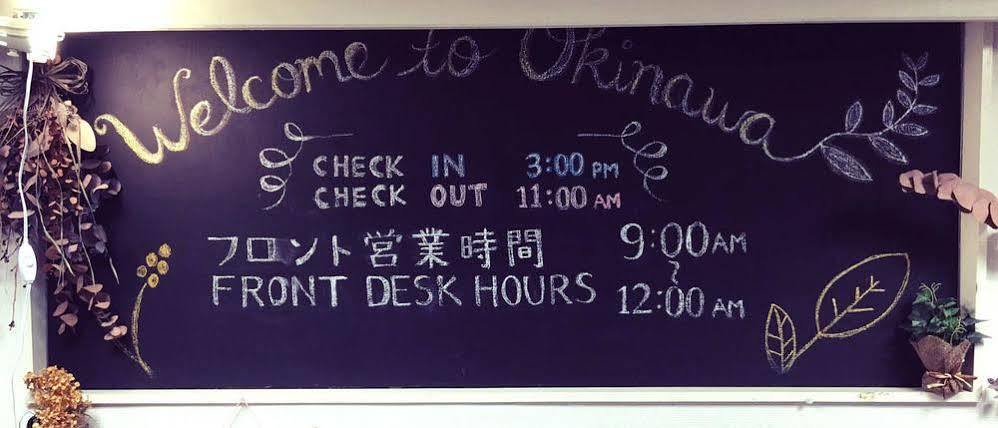 Welcome to Okinawa
CHECK IN 3:00 PM
CHECK OUT 11:00 AM
フロント営業時間 9:00AM
~
FRONT DESK HOURS 12:00 AM